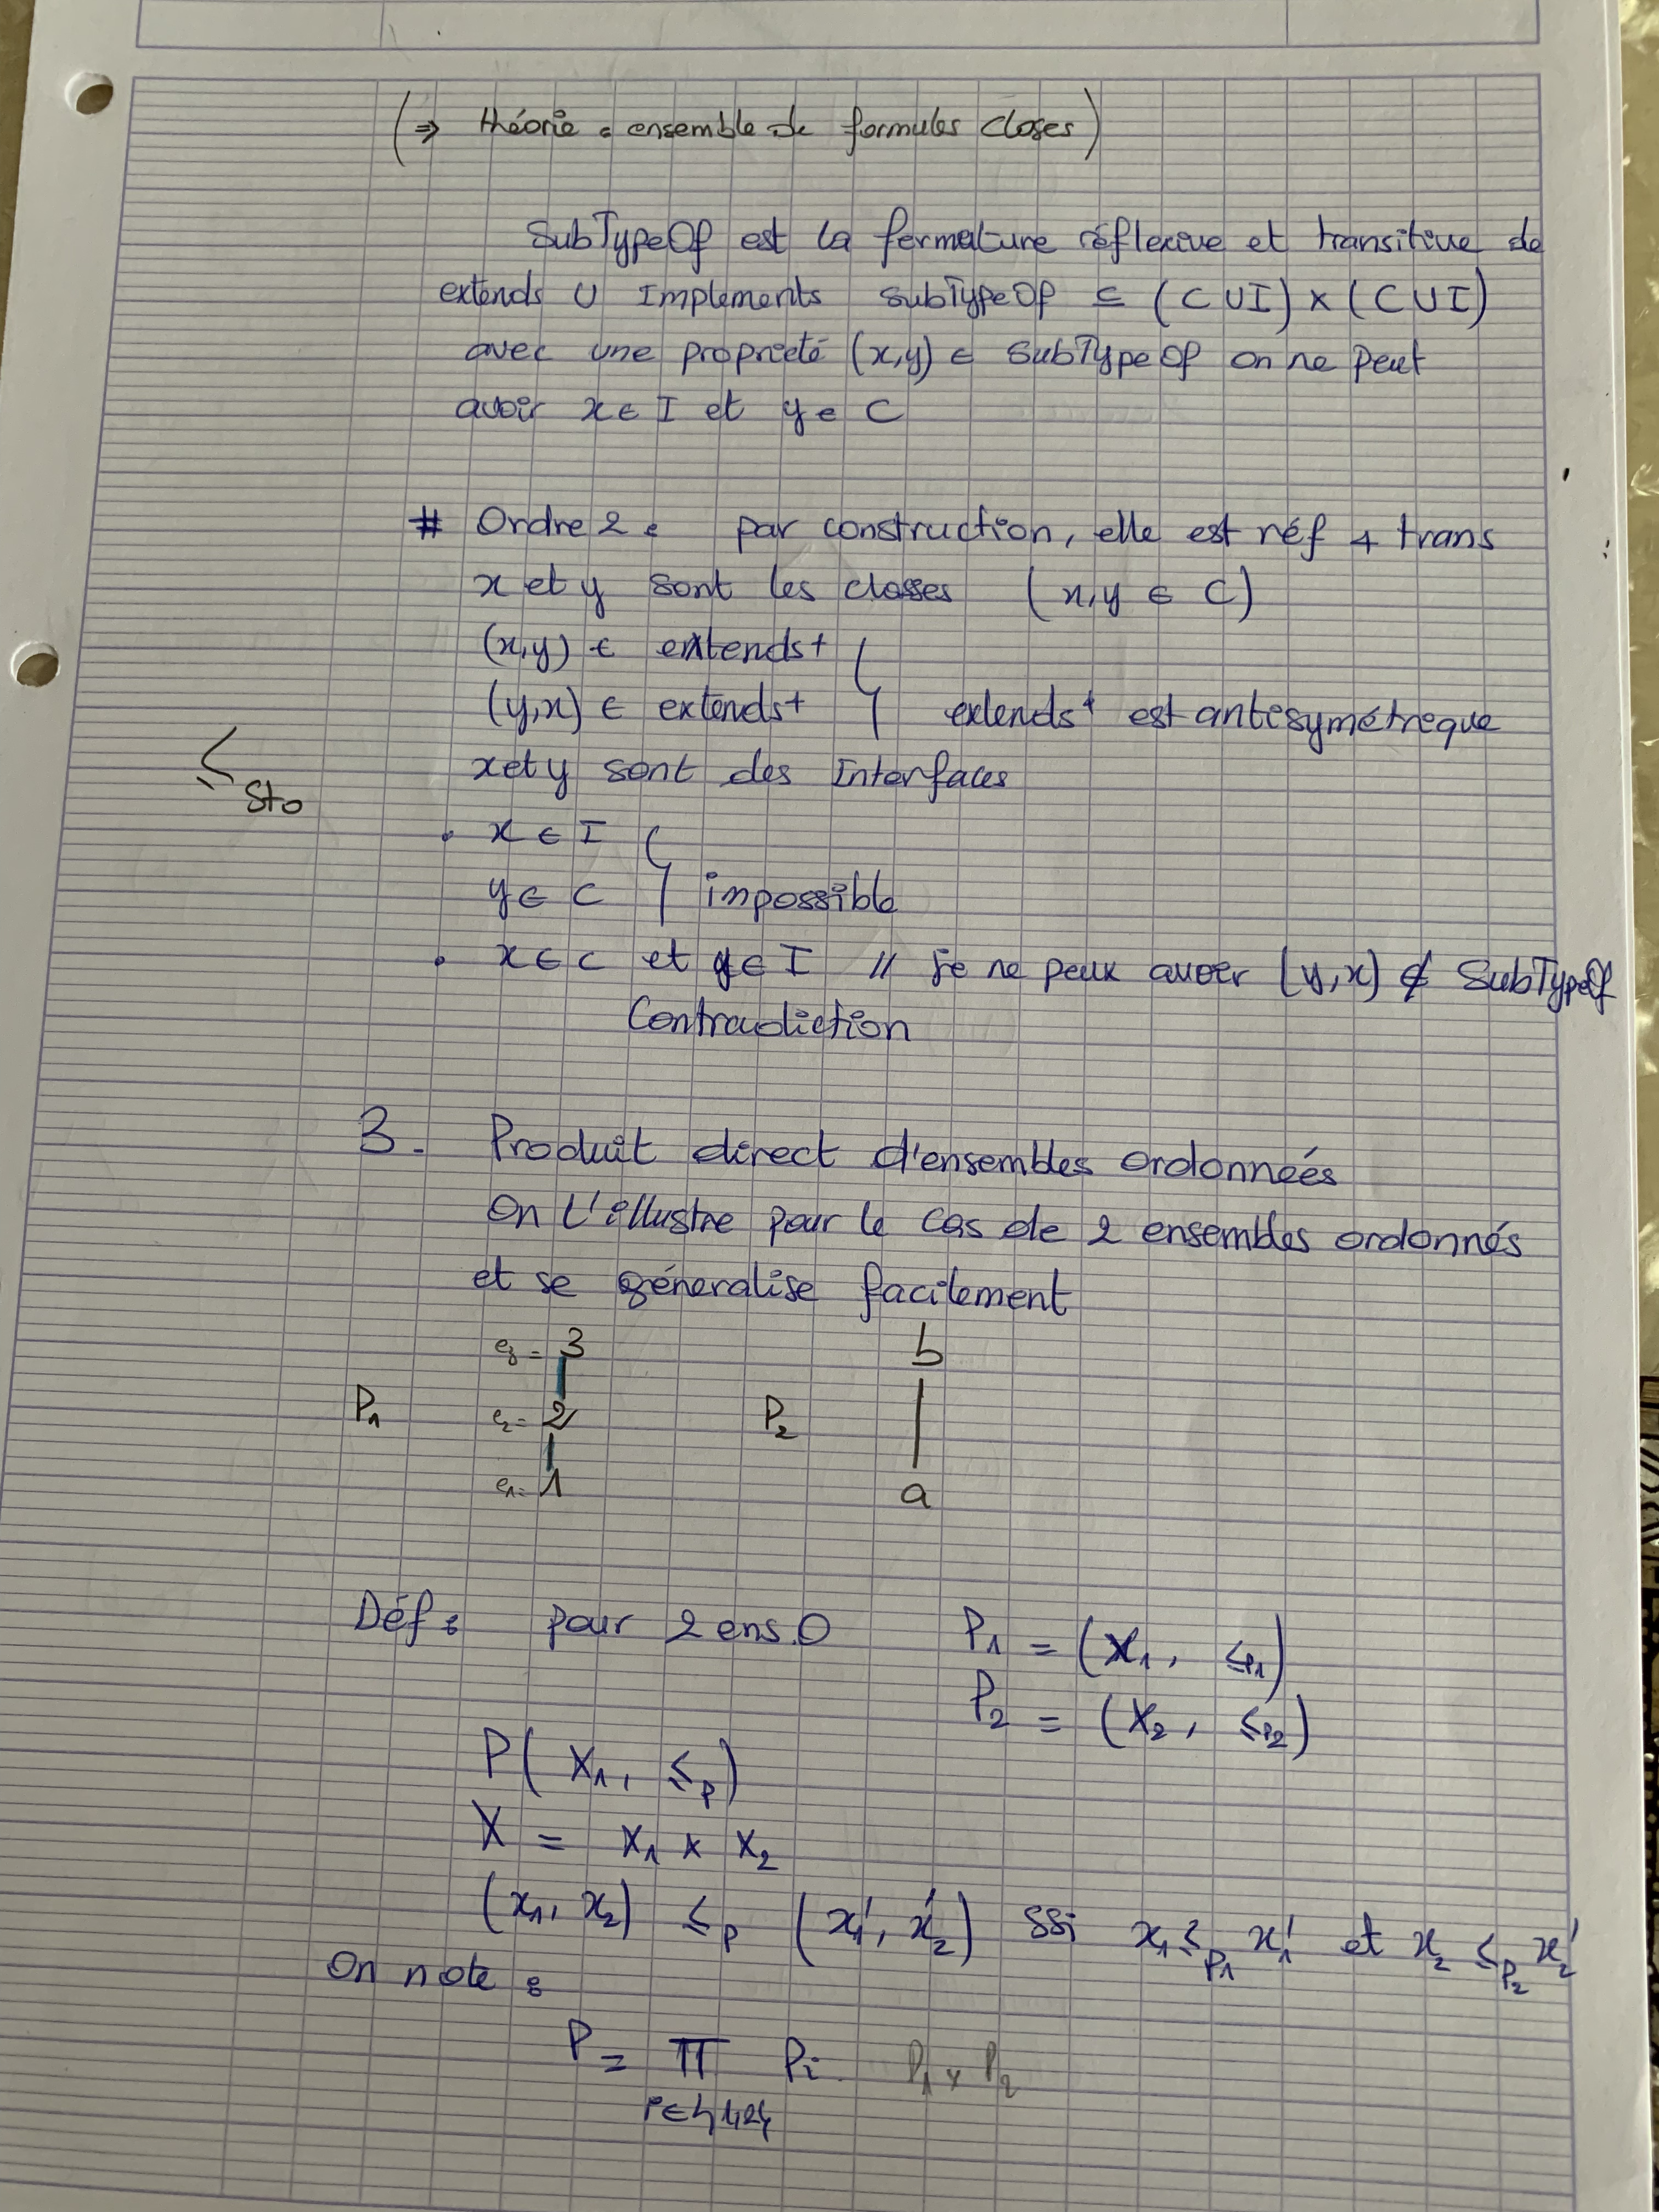 (⇒ théorie = ensemble de formules closes)
SubTypeOf est la fermeture réflexive et transitive de
extends ∪ Implements SubTypeOf ⊆ (C ∪ I) × (C ∪ I)
avec une propriété (x,y) ∈ SubTypeOf on ne peut
avoir x ∈ I et y ∈ C
# Ordre 2 : par construction, elle est réf + trans
x et y sont les classes (x,y ∈ C)
(x,y) ∈ extends+
(y,x) ∈ extends+ } extends+ est antisymétrique
x et y sont des Interfaces
≤sto
• x ∈ I
y ∈ C } impossible
• x ∈ C et y ∈ I // je ne peux avoir (y,x) ∉ SubTypeOf
Contradiction
3. Produit direct d'ensembles ordonneés
On l'illustre pour le cas de 2 ensembles ordonnés
et se géneralise facilement
e3 = 3 b
P1 e2 = 2 P2
e1 = 1 a
Déf : pour 2 ens.O P1 = (X1, ≤P1)
P2 = (X2, ≤P2)
P(X1, ≤P)
X = X1 × X2
(x1, x2) ≤P (x1', x2') ssi x1 ≤P1 x1' et x2 ≤P2 x2'
On note :
P = Π Pi P1 × P2
i∈{1,2}